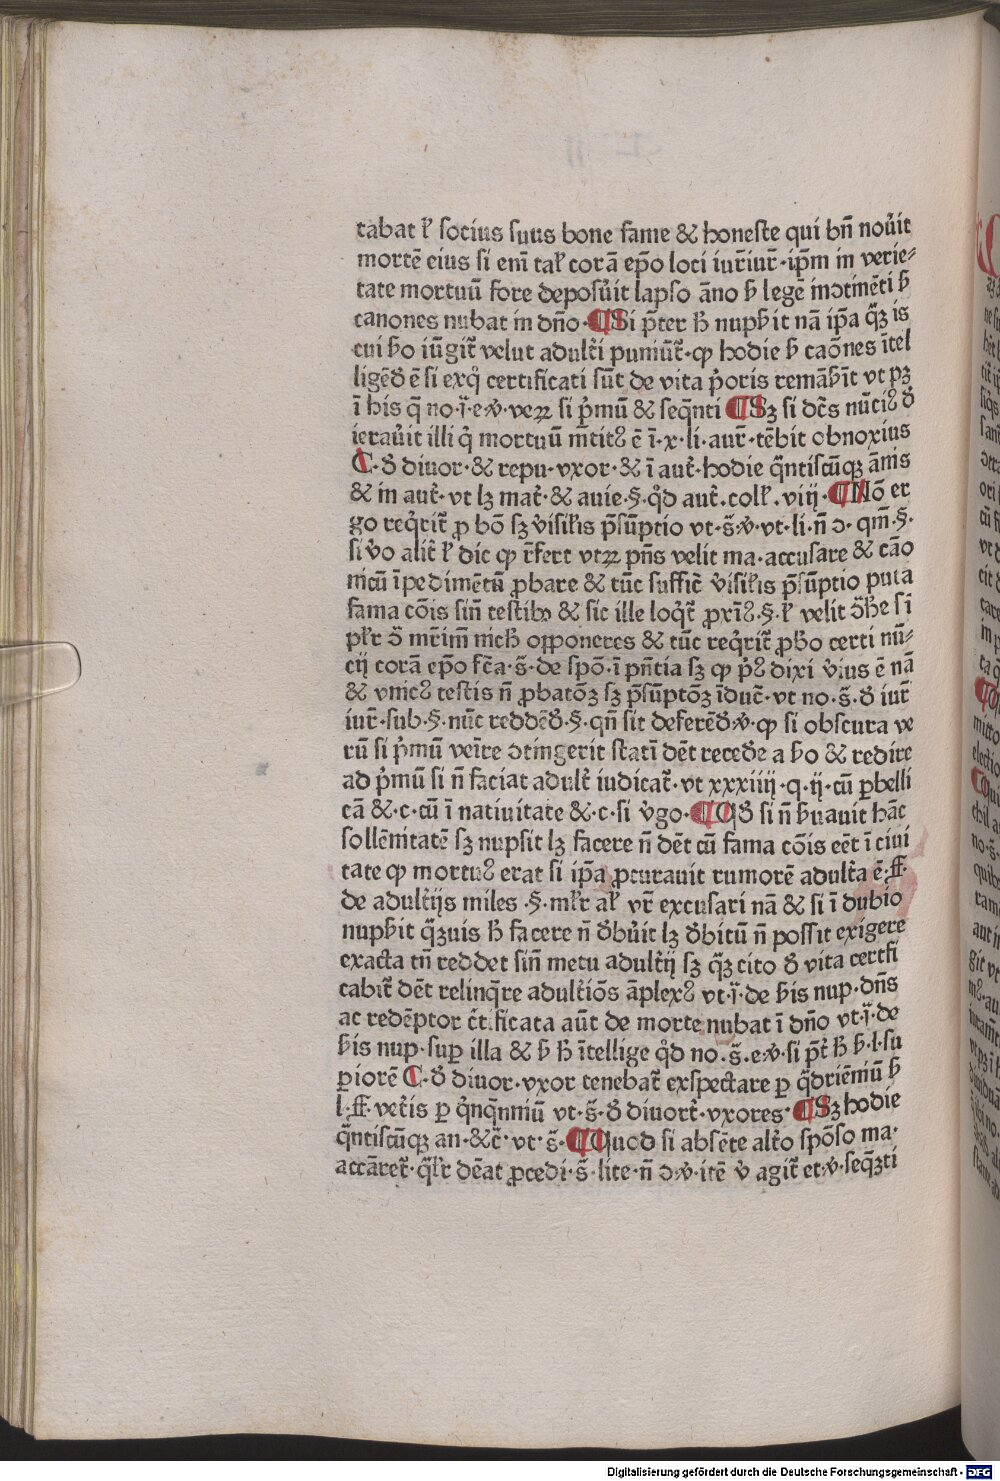 tabat ł socius suus bone fame & honeste qui bn̄ nou᷑it
mortē eius si eni᷑ tal᷑ corā ep̄o loci iur᷑iur᷑·ip̄m in verie⸗
tate mortuū fore deposu᷑it lapso āno ƀ legē inↄtinēti ƀ
canones nubat in dn̄o·¶Si p̄ter h̄ nupƀit nā ip̄a q̄ꝫ is
cui ƀo iūgit᷑ velut adult᷑i puniūt᷑·ꝙ hodie ƀ caōnes ītel
ligēd᷑ ē si exq᷑ certificati sūt de vita p᷑oris remāƀīt vt pꝫ
ī his q̄ no·ī᷑·e·v᷑·veꝝ si p᷑mū & seq̄nti ¶Sꝫ si dc̄s nūciꝰ d᷑
ierau᷑it illi q᷑ mortuū m̄titꝰ ē ī·x·li·aur᷑·tēbit obnoxius
C·d᷑ diuor·& repu·vxor·& ī aut᷑·hodie q̄ntiscūqꝫ ānis
& in aut᷑·vt lꝫ mat᷑·& auie·§·q᷑d aut᷑.coll᷑.viij·¶Nō er
go req᷑rit᷑ ꝓ bō sꝫ v᷑isil᷑is p̄sūptio vt·s᷑·v᷑·vt·li·n̄ ↄ·qm̄·§·
si v᷑o alit᷑ ł dic ꝙ r᷑fert vtꝝ pn̄s velit ma·accusare & cāo
nicū īpedimētū ꝓbare & tūc suffic᷑ v᷑isil᷑is p̄sūptio puta
fama cōis sin̄ testibꝫ & sic ille loq᷑t᷑ ꝓxīꝰ·§·ł velit d᷑h̄e sī
pl᷑r d᷑ mr᷑im̄ nich̄ opponeres & tūc req᷑rit᷑ ꝓƀo certi nū⸗
cij corā ep̄o fc̄a·s᷑·de spō·ī pn̄tia sꝫ ꝙ p᷑ꝰ dixi v᷑ius ē nā
& vnicꝰ testis n̄ ꝓbatōꝫ sꝫ p̄sūptōꝫ īduc᷑·vt no·s᷑·d᷑ iur᷑
iur᷑·sub·§·nūc reddēd᷑·§·qn̄ sit deferēd᷑·v᷑·ꝙ si obscura ve
rū si p᷑mū veīre ↄtingerit statī dēt recedēe a ƀo & redire
ad p᷑mū si n̄ faciat adult᷑ iudicat᷑·vt xxxiiij·q·ij·cū ꝑbelli
cā &·c·cū ī natiuitate &·c·si v᷑go·¶Qd᷑ si n̄ ƀuauit hāc
sollēnitatē sꝫ nupsit lꝫ facere n̄ dēt cū fama cōis eēt ī ciui
tate ꝙ mortuꝰ erat si ip̄a ꝓcurauit rumorē adult᷑a ē·ff·
de adult᷑ijs miles ·§·ml᷑r al᷑ vr᷑ excusari nā & si ī dubio
nupƀit q̄ꝫuis h̄ facere n̄ d᷑bu᷑it lꝫ d᷑bitū n̄ possit exigere
exacta tn̄ reddet sin̄ metu adult᷑ij sꝫ q̄ꝫ cito d᷑ vita certfi
cabit᷑ dēt relinq̄re adult᷑iōs āplexꝰ vt·ī᷑·de ƀis nup·dn̄s
ac redēptor c᷑tificata aūt de morte nubat ī dn̄o vt·ī᷑·de
ƀis nup·suꝑ illa & ƀ h̄ ītellige q᷑d no.s᷑.e·v᷑·si p̄t᷑ h̄ ƀ·l·su
ꝑiorē C·d᷑ diuor·vxor tenebat᷑ exspectare ꝑ q̄driēniū ƀ
l·ff·vet᷑is ꝑ q᷑nq̄nniū vt·s᷑·d᷑ diuort᷑·vxores·¶Sꝫ hodie
q̄ntiscūqꝫ an·&c᷑·vt·s᷑·¶Quod si absēte alt᷑o spōso ma·
accāret᷑·q̄l᷑r dēat ꝓcedi·s᷑·lite·n̄ ↄ·v᷑·itē v᷑ agit᷑ et·v᷑·seq̄ꝫti
Digitalisierung gefördert durch die Deutsche Forschungsgemeinschaft - DFG